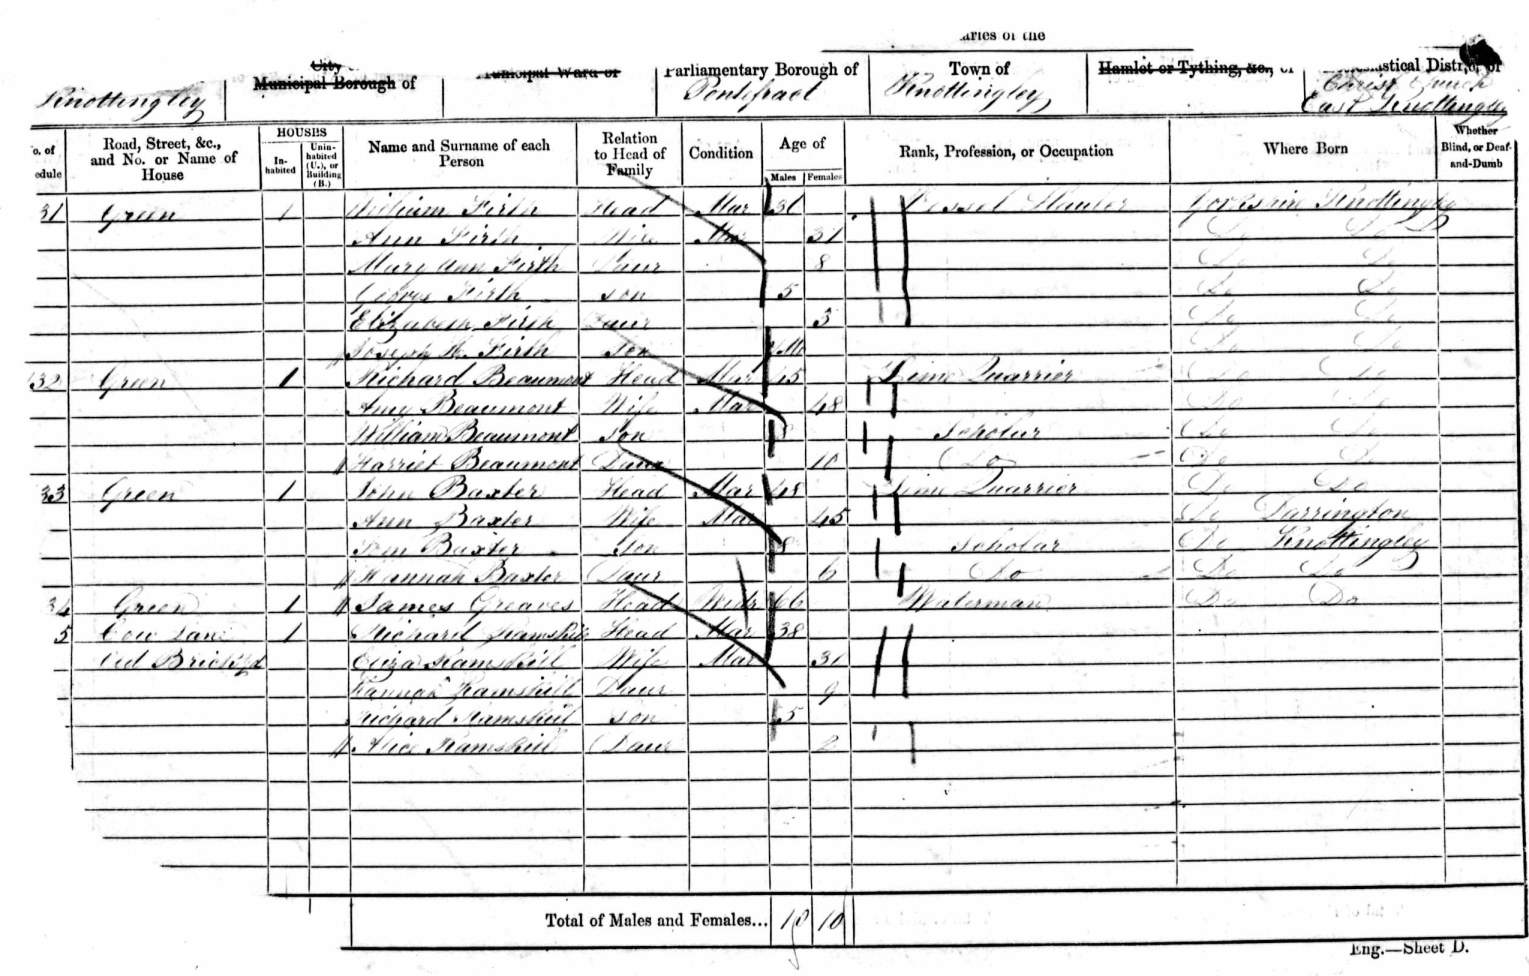 aries of the
City
Municipal Borough of
Municipal Ward of
Parliamentary Borough of
Town of
Hamlet or Tything, &c., of
Ecclesiastical District of
Knottingley
Pontefract
Knottingley
Christ Church
East Knottingley
o. of
edule
Road, Street, &c.,
and No. or Name of
House
HOUSES
In-
habited
Unin-
habited
(U.), or
Building
(B.)
Name and Surname of each
Person
Relation
to Head of
Family
Condition
Age of
Males
Females
Rank, Profession, or Occupation
Where Born
Whether
Blind, or Deaf-
and-Dumb
31 Green 1 William Firth Head Mar 31 Vessel Hauler Yorkshire Knottingley
Ann Firth Wife Mar 31 Do Do
Mary Ann Firth Daur 8 Do Do
George Firth Son 5 Do Do
Elizabeth Firth Daur 3 Do Do
Joseph H. Firth Son Mo Do Do
32 Green 1 Richard Beaumont Head Mar 45 Lime Quarrier Do Do
Amy Beaumont Wife Mar 48 Do Do
William Beaumont Son Scholar Do Do
Harriet Beaumont Daur 10 Do Do Do
33 Green 1 John Baxter Head Mar 48 Lime Quarrier Do Do
Ann Baxter Wife Mar 45 Do Darrington
Tom Baxter Son 8 Scholar Do Knottingley
Hannah Baxter Daur 6 Do Do Do
34 Green 1 James Greaves Head Widr 66 Waterman Do Do
5 Cow Lane 1 Richard Ramskill Head Mar 38
Old Brickyd Eliza Ramskill Wife Mar 31
Hannah Ramskill Daur 9
Richard Ramskill Son 5
Alice Ramskill Daur 2
Total of Males and Females... 10 10
Eng.—Sheet D.